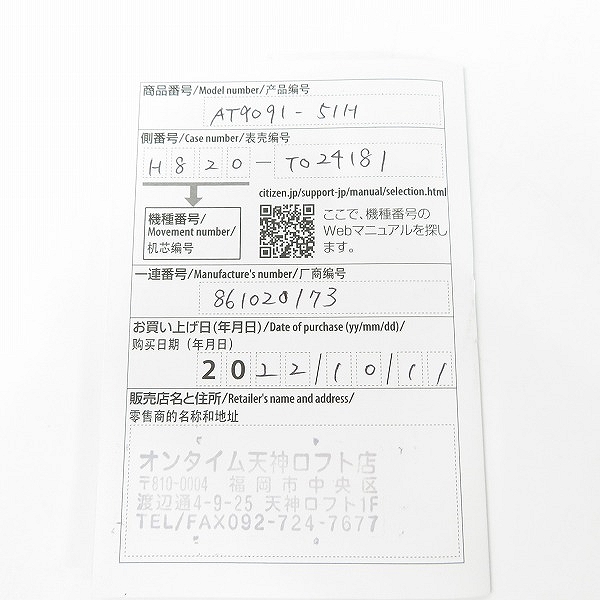 商品番号/Model number/产品编号
AT9091-51H
側番号/Case number/表壳编号
H820-T024181
citizen.jp/support-jp/manual/selection.html
機種番号/
Movement number/
机芯编号
ここで、機種番号の
Webマニュアルを探し
ます。
一連番号/Manufacture's number/厂商编号
861020173
お買い上げ日(年月日)/Date of purchase (yy/mm/dd)/
购买日期（年月日）
2022/10/11
販売店名と住所/Retailer's name and address/
零售商的名称和地址
オンタイム天神ロフト店
〒810-0004 福岡市中央区
渡辺通4-9-25 天神ロフト1F
TEL/FAX092-724-7677